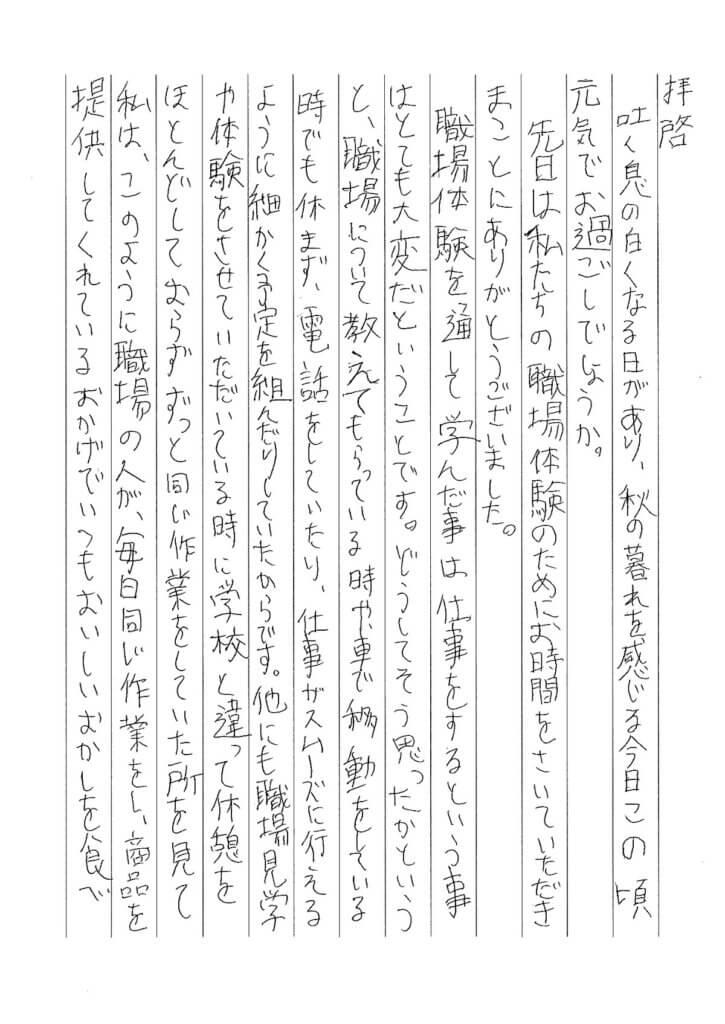 拝啓
吐く息の白くなる日があり、秋の暮れを感じる今日この頃
元気でお過ごしでしょうか。
先日は私たちの職場体験のためにお時間をさいていただき
まことにありがとうございました。
職場体験を通して学んだ事は仕事をするという事
はとても大変だということです。どうしてそう思ったかという
と、職場について教えてもらっている時や、車で移動をしている
時でも休まず、電話をしていたり、仕事がスムーズに行える
ように細かく予定を組んだりしていたからです。他にも職場見学
や体験をさせていただいている時に学校と違って休憩を
ほとんどしておらずずっと同じ作業をしていた所を見て
私は、このように職場の人が、毎日同じ作業をし、商品を
提供してくれているおかげでいつもおいしいおかしを食べ